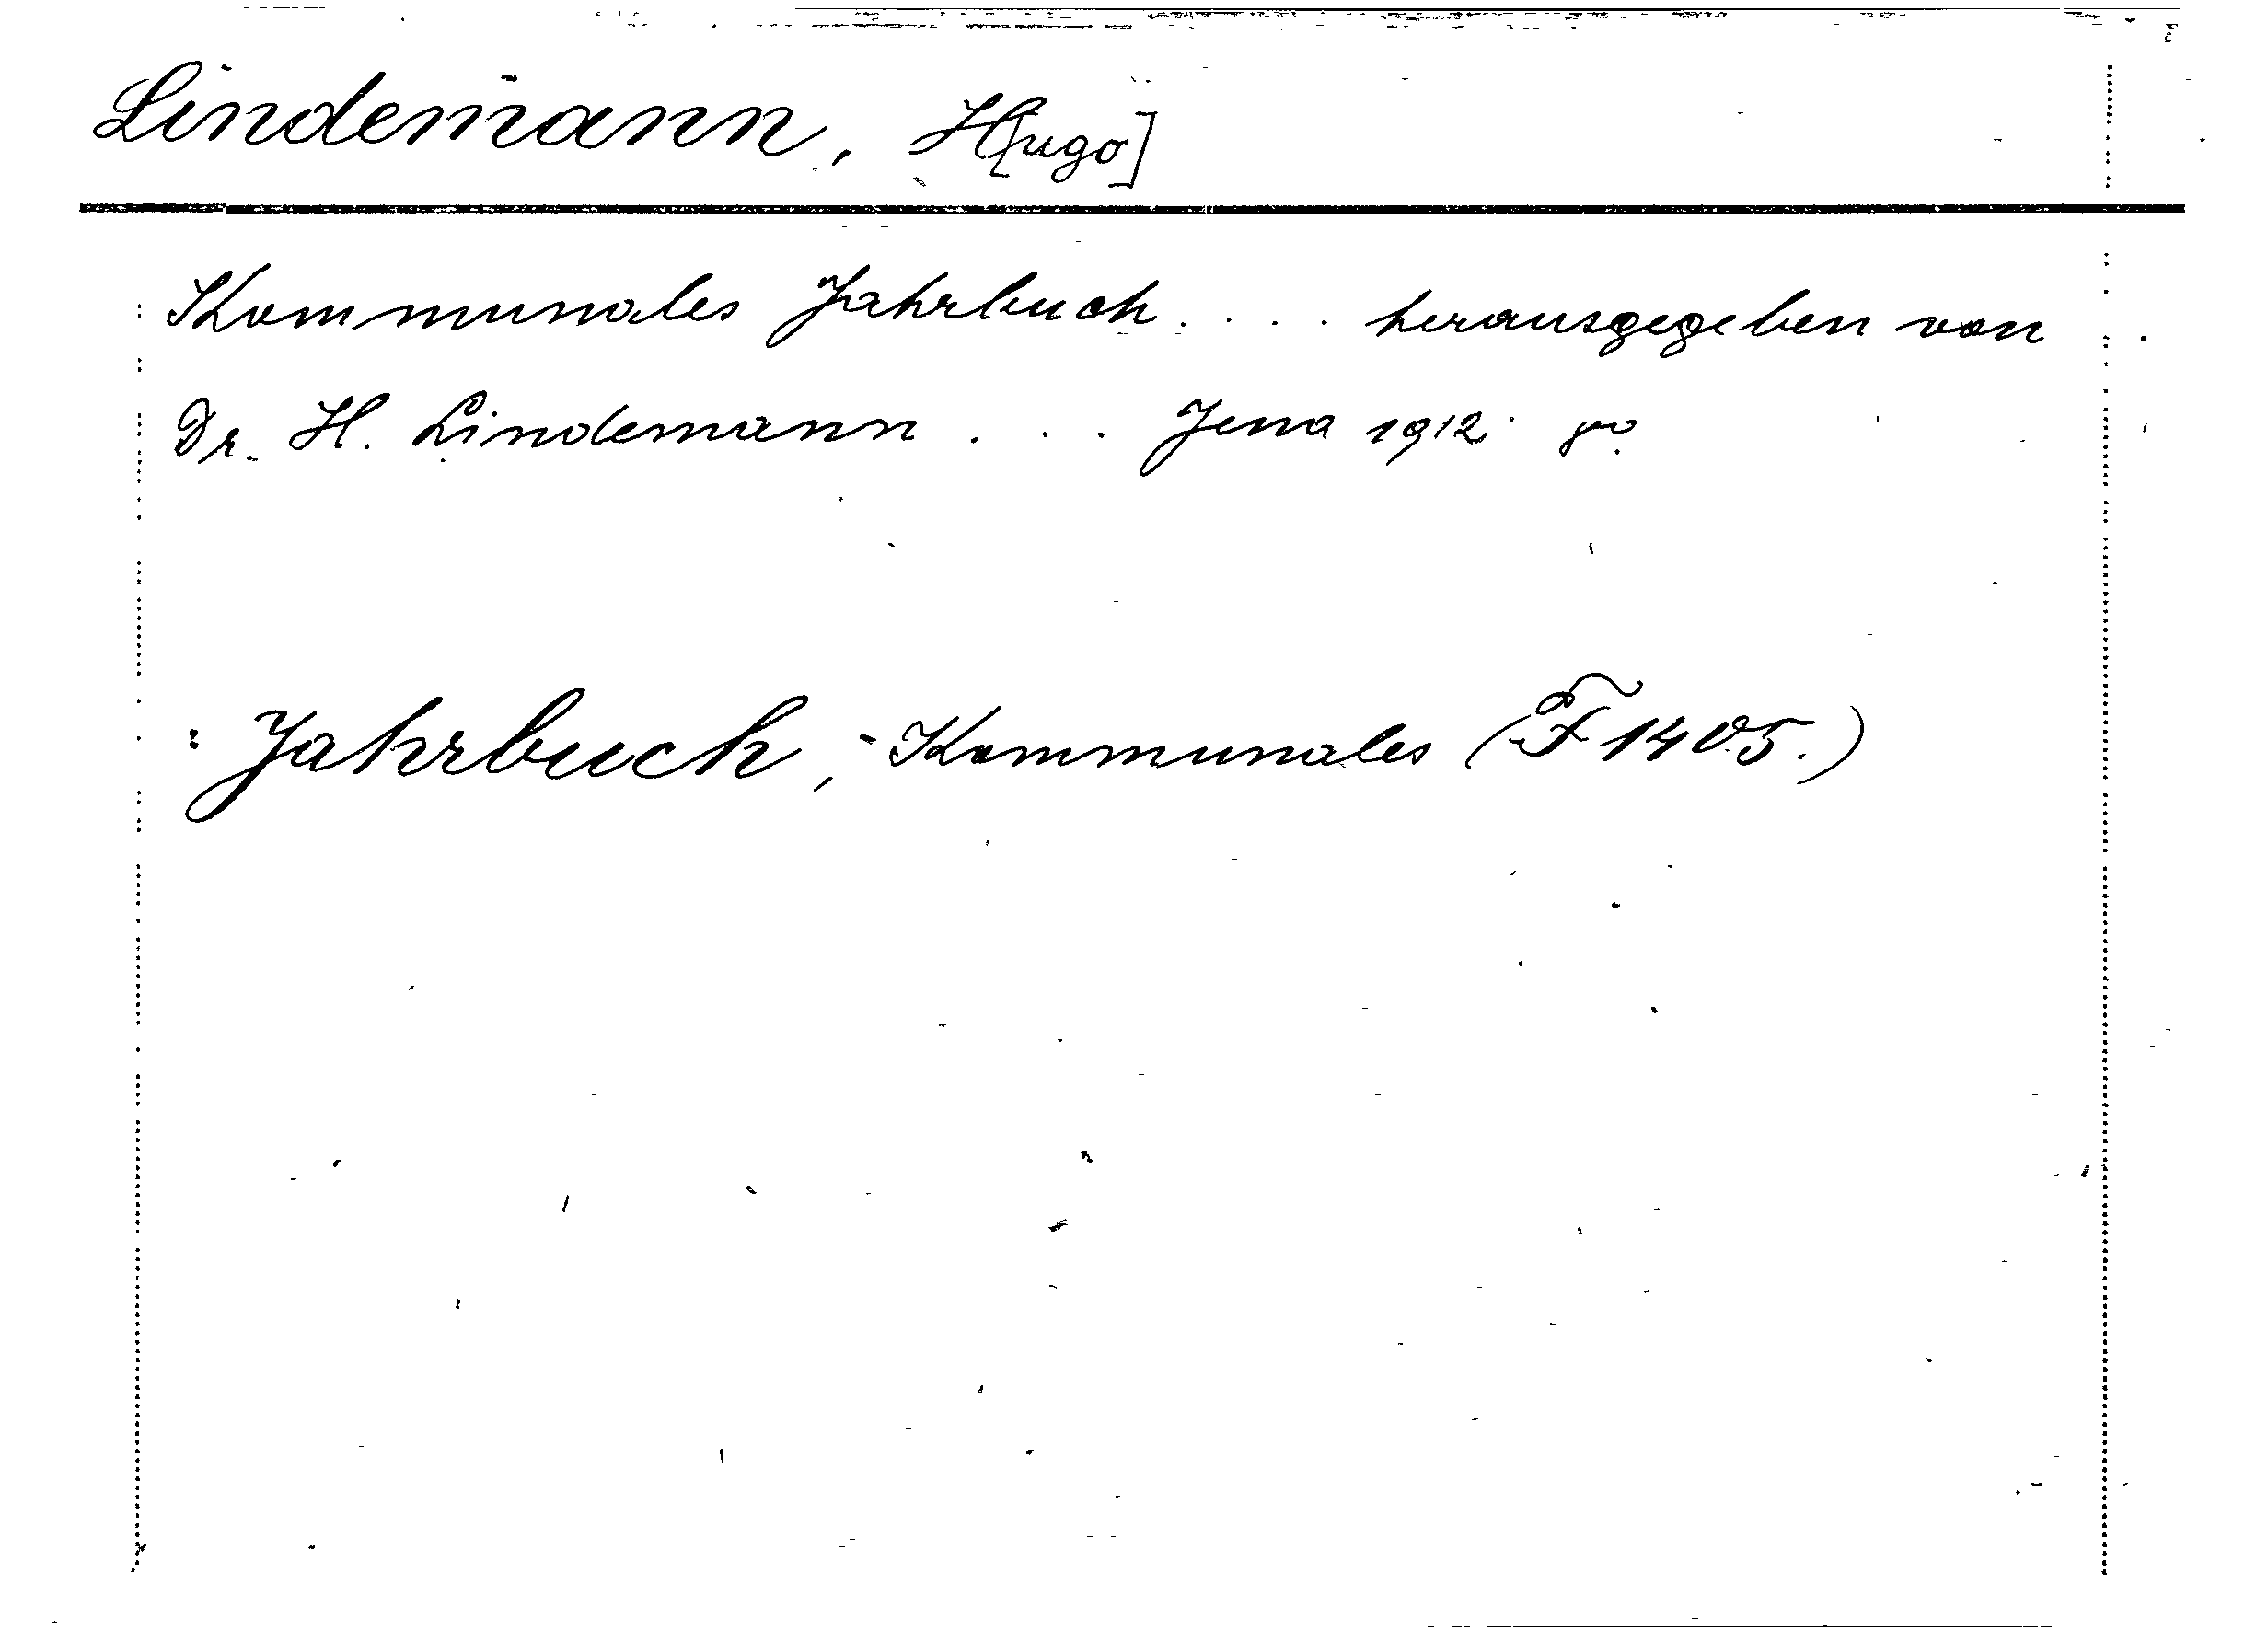 Lindemann, H[ugo]
Kommunales Jahrbuch.... herausgegeben von
Dr. H. Lindemann... Jena 1912. 8vo.
Jahrbuch, Kommunales (F 1405.)